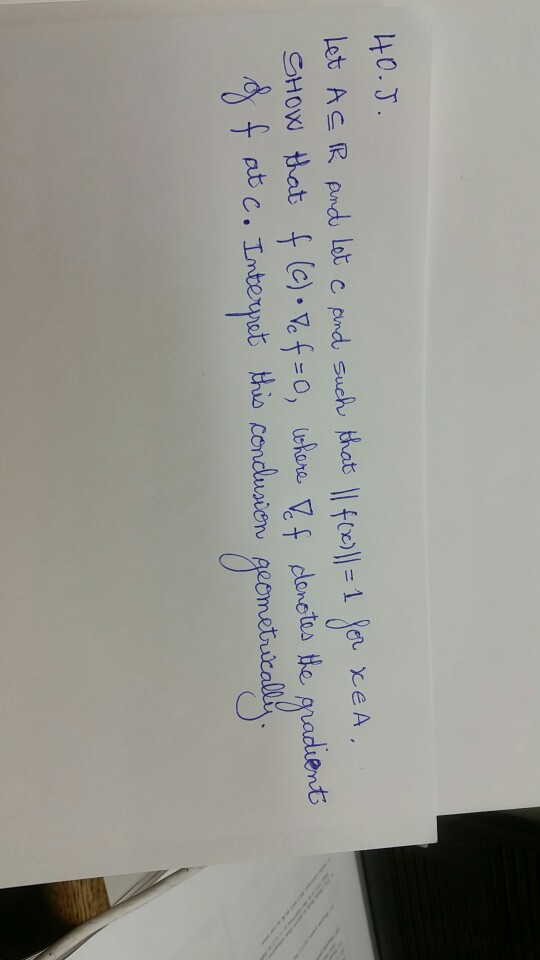 40.J.
Let A ⊆ ℝ and let c and such that || f(x)|| = 1 for x ∈ A.
SHOW that f (c) • ∇c f = 0, where ∇c f denotes the gradient
of f at c. Interpret this conclusion geometrically.